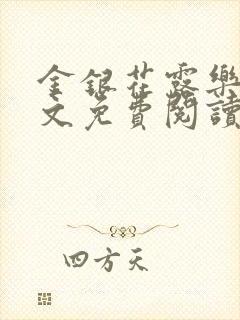 金銀花露樂
文免費閱讀
四方天